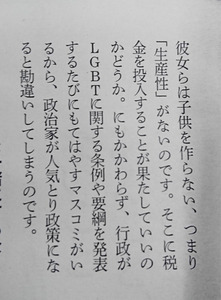 彼女らは子供を作らない、つまり
「生産性」がないのです。そこに税
金を投入することが果たしていいの
かどうか。にもかかわらず、行政が
LGBTに関する条例や要綱を発表
するたびにもてはやすマスコミがい
るから、政治家が人気とり政策にな
ると勘違いしてしまうのです。